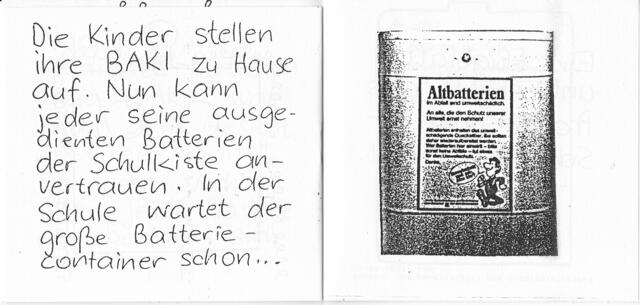 Die Kinder stellen
ihre BAKI zu Hause
auf. Nun kann
jeder seine ausge-
dienten Batterien
der Schulkiste an-
vertrauen. In der
Schule wartet der
große Batterie-
container schon...
Altbatterien
im Abfall sind umweltschädlich.
An alle, die den Schutz unserer
Umwelt ernst nehmen!
Altbatterien enthalten das umwelt-
schädigende Quecksilber. Sie sollen
daher wiederaufbereitet werden.
Wer Batterien hier einwirft – bitte
sonst keine Abfälle – tut etwas
für den Umweltschutz.
Danke.